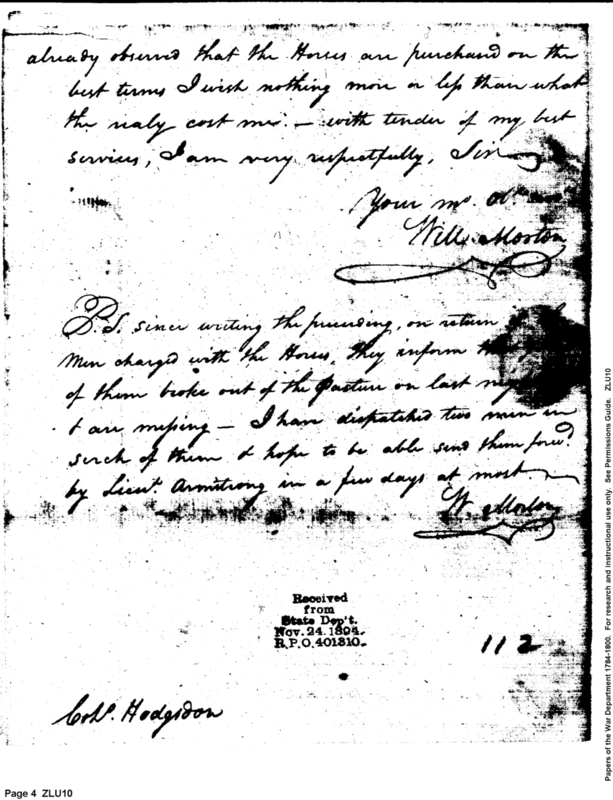 already observed that the Horses are purchased on the
best terms I wish nothing more or less than what
the realy cost me. — with tender of my best
services, I am very respectfully, Sir
Your mo. Ob.
Will. Morton
P.S. since writing the preceeding, on return
Men charged with the Horses, they inform
of them broke out of the Pasture on last
& are missing — I have dispatched two men in
serch of them & hope to be able send them forwd.
by Lieut. Armstrong in a few days at most.
W. Morton
Received
from
State Dep't.
Nov. 24. 1894.
R.P.O. 401310.
112
Colo. Hodgsdon
Page 4 ZLU10
Papers of the War Department 1784-1800. For research and instructional use only. See Permissions Guide. ZLU10